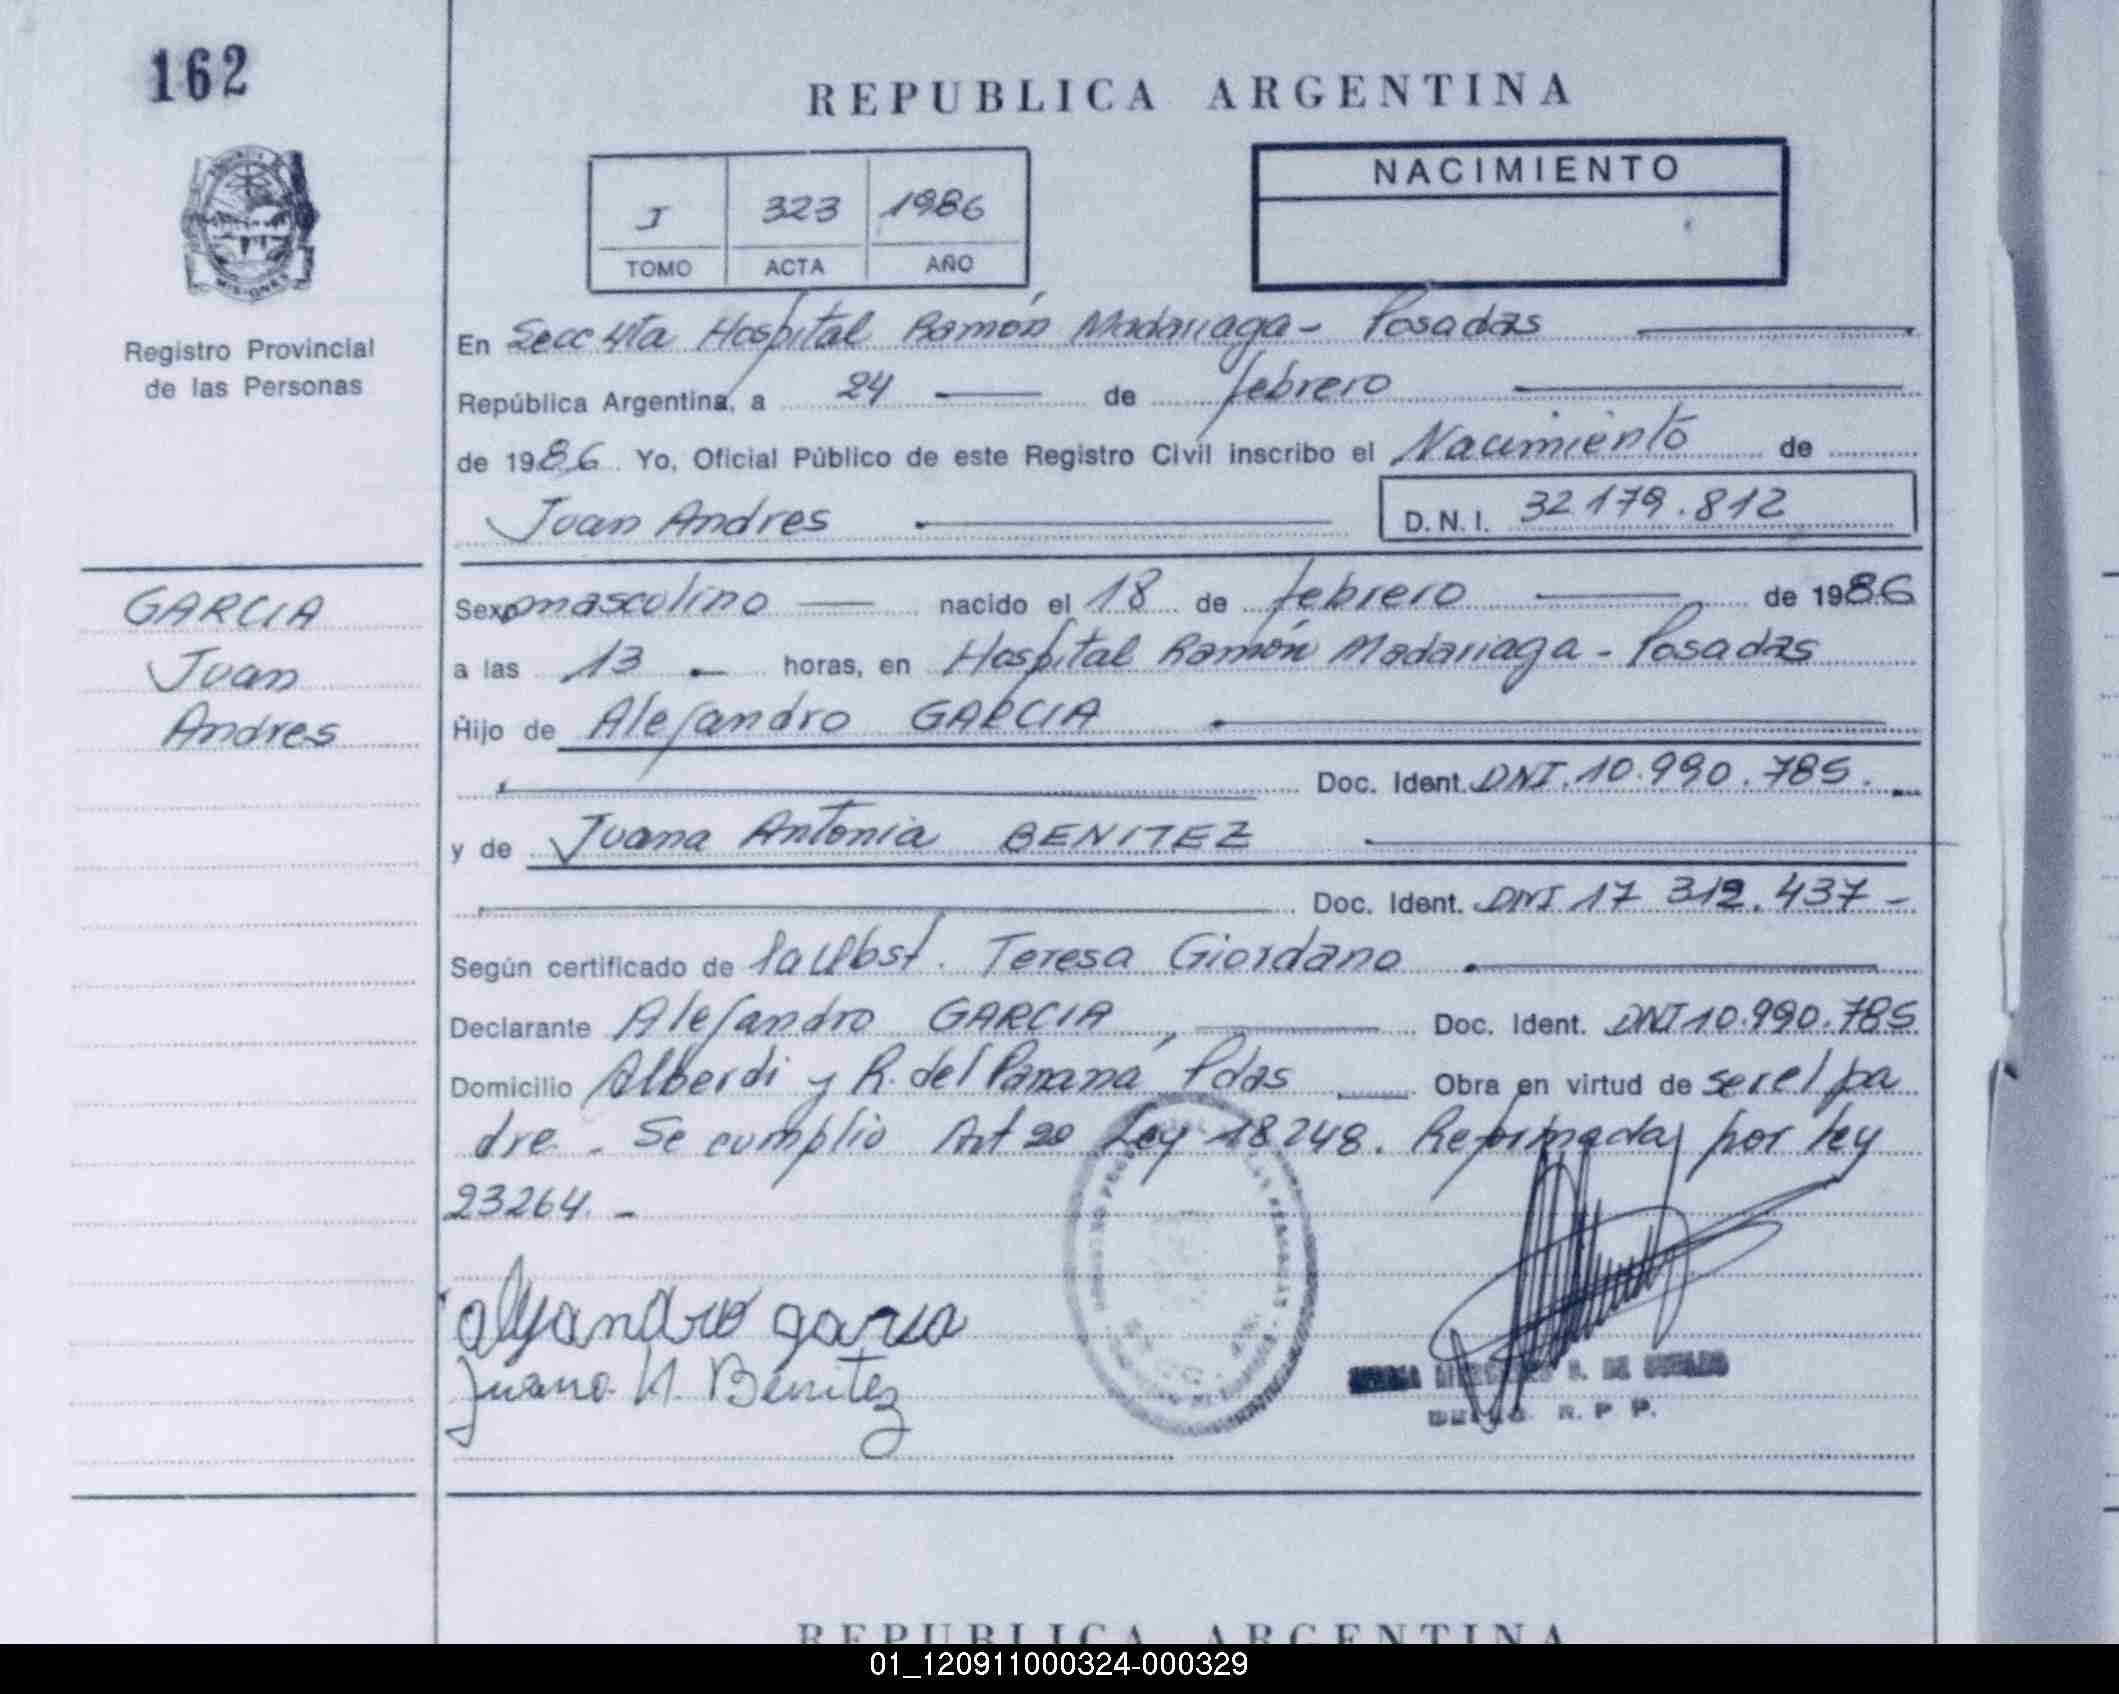 162
REPUBLICA ARGENTINA
NACIMIENTO
I 323 1986
TOMO ACTA AÑO
MISIONES
Registro Provincial
de las Personas
En Secc 4ta Hospital Ramón Madariaga - Posadas
República Argentina, a 24 de febrero
de 1986. Yo, Oficial Público de este Registro Civil inscribo el Nacimiento de
Juan Andres D.N.I. 32179.812
GARCIA
Juan
Andres
Sexo masculino nacido el 18 de febrero de 1986
a las 13 horas, en Hospital Ramón Madariaga - Posadas
Hijo de Alejandro GARCIA
Doc. Ident. DNI. 10.990.785.
y de Juana Antonia BENITEZ
Doc. Ident. DNI 17 312.437 -
Según certificado de la Obst. Teresa Giordano
Declarante Alejandro GARCIA, Doc. Ident. DNI 10.990.785
Domicilio Alberdi y R. del Paraná Pdas Obra en virtud de ser el pa
dre. Se cumplio Art 20 Ley 18248. Reformada por ley
23264. -
alejandro garcia
Juana A. Benitez
S. DE
R. P. P.
REPUBLICA ARGENTINA
01_120911000324-000329